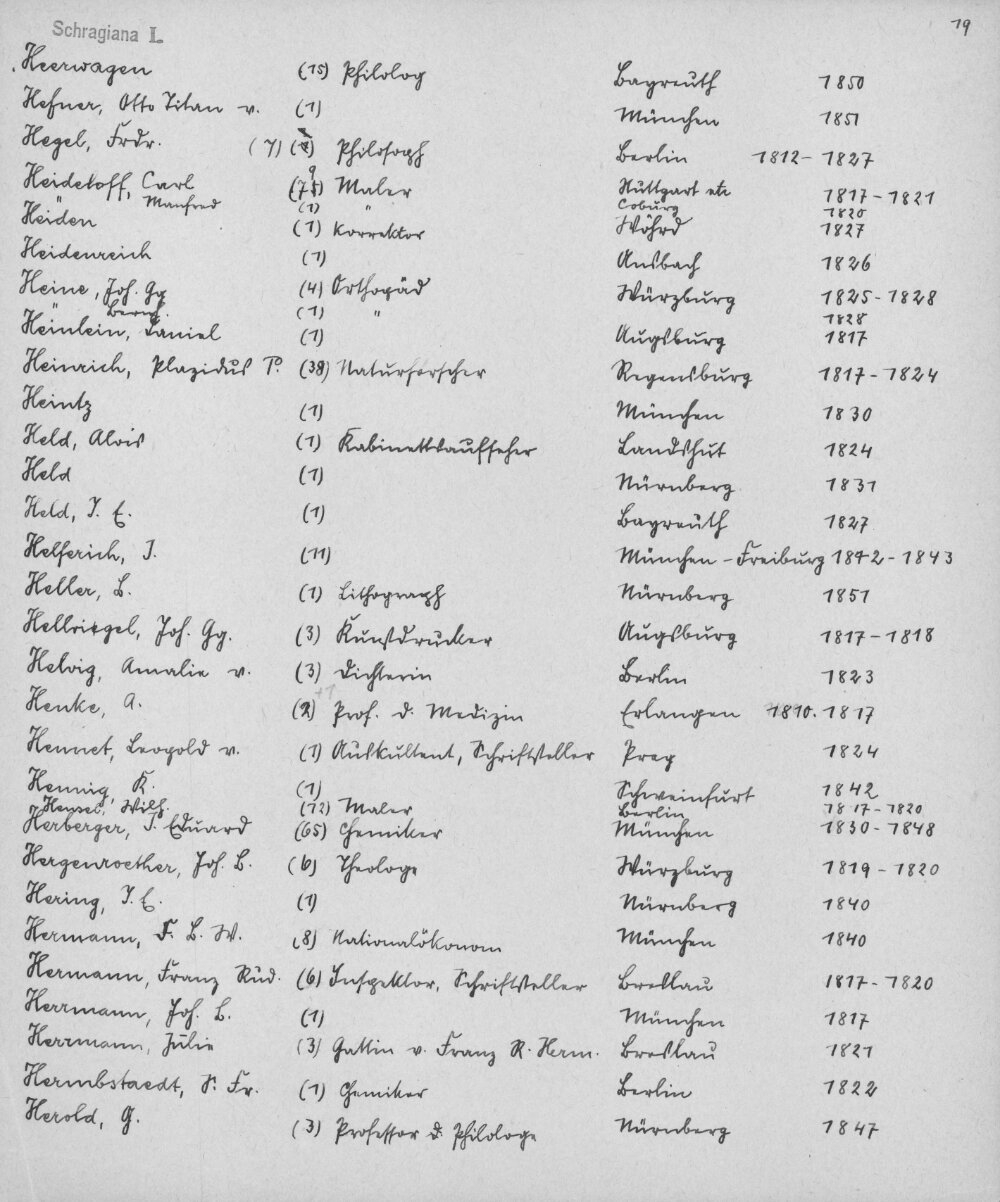 Schragiana I.
19
Heerwagen (15) Philolog Bayreuth 1850
Hefner, Otto Titan v. (1) München 1851
Hegel, Frdr. (7) Philosoph Berlin 1812-1827
Heideloff, Carl Maler Stuttgart etc 1817-1821
" Manfred (1) " Coburg 1820
Heiden (1) Korrektor Wöhrd 1827
Heidenreich (1) Ansbach 1826
Heine, Joh. Gg (4) Orthopäd Würzburg 1825-1828
" Bernh. (1) " 1828
Heinlein, Daniel (1) Augsburg 1817
Heinrich, Plazidus P. (38) Naturforscher Regensburg 1817-1824
Heintz (1) München 1830
Held, Alois (1) Kabinettsaufseher Landshut 1824
Held (1) Nürnberg 1831
Held, J. E. (1) Bayreuth 1827
Helferich, J. (11) München - Freiburg 1842-1843
Heller, B. (1) Lithograph Nürnberg 1851
Hellriegel, Joh. Gg. (3) Kunstdrucker Augsburg 1817-1818
Helvig, Amalie v. (3) Dichterin Berlin 1823
+1
Henke, A. (2) Prof. d. Medizin Erlangen 1810. 1817
Hennet, Leopold v. (1) Auskultent, Schriftsteller Prag 1824
Hennig, K. (1) Schweinfurt 1842
Hensel, Wilh. (12) Maler Berlin 1817-1820
Herberger, J. Eduard (65) Chemiker München 1830-1848
Hergenroether, Joh. B. (6) Theologe Würzburg 1819-1820
Hering, J. E. (1) Nürnberg 1840
Hermann, F. B. W. (8) Nationalökonom München 1840
Hermann, Franz Rud. (6) Inspektor, Schriftsteller Breslau 1817-1820
Herrmann, Joh. B. (1) München 1817
Herrmann, Julie (3) Gattin v. Franz R. Herm. Breslau 1821
Hermbstaedt, S. Fr. (1) Chemiker Berlin 1822
Herold, G. (3) Professor d. Philologe Nürnberg 1847